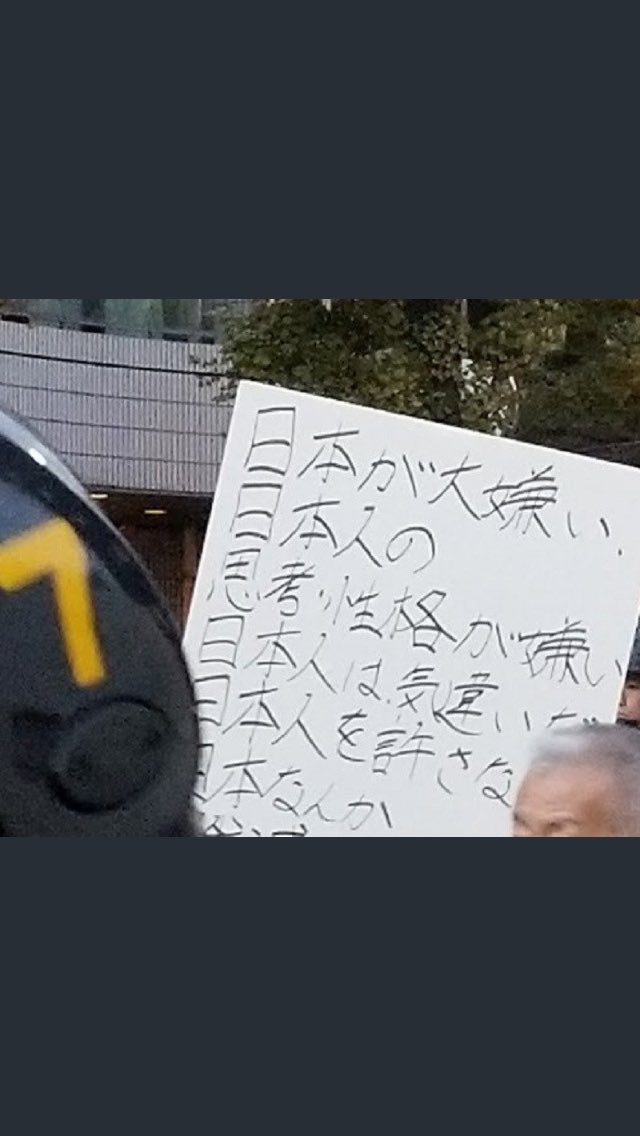 日本が大嫌い.
日本人の
思考、性格が嫌い
日本人は気違いだ
日本人を許さな
日本なんか
7